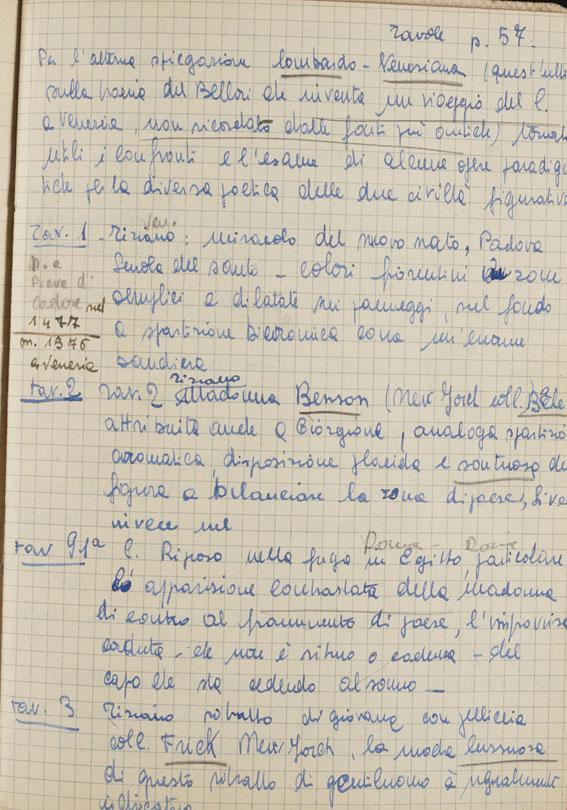 Tavole p. 57.
Per l'alterna spiegazione lombardo-Veneziana (quest'ulti
sulla scia del Bellori che inventa un viaggio del C.
a Venezia, non ricordato dalle fonti più antiche) tornat
utili i confronti e l'esame di alcune opere paradigm
tiche per la diversa poetica delle due civiltà figurativ
Tav. 1 - Tiziano: miracolo del nuovo nato, Padova
Scuola del Santo - colori in zone
semplici e dilatate nei panneggi, sul fondo
a spartizione bicromica come un'enorme
bandiera
n. a
Pieve di
Cadore nel
1477
m. 1576
a Venezia
Tav. 2 Tav. 2 Tiziano Madonna Benson (New Yorch coll. Bache
attribuita anche a Giorgione, analoga spartizio
cromatica, disposizione placida e sontuosa de
figura a bilanciare la zona di paese,
invece nel
Tav 91a C. Riposo nella fuga in Egitto, particolare
Roma - Doria
apparizione contrastata della Madonna
di contro al frammento di paese, l'improvvisa
caduta - che non è ritmo o cadenza - del
capo che sta cedendo al sonno -
Tav. 3 Tiziano ritratto di giovane con pelliccia
coll. Frick New Yorch, la moda lussuosa
di questo ritratto di gentiluomo è ugualmente